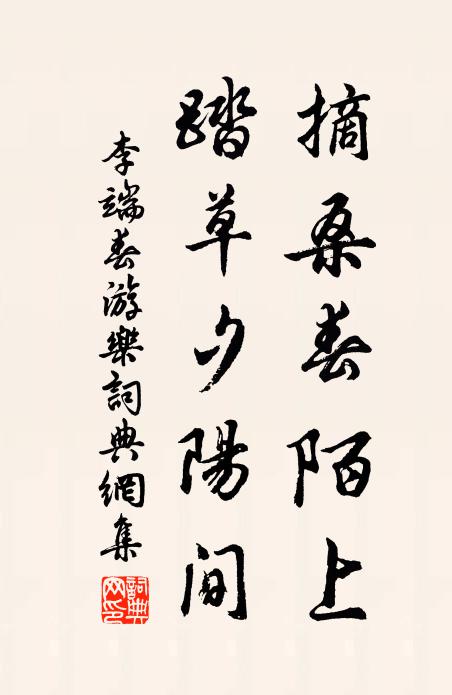 摘桑春陌上
踏草夕陽間
李端春游樂詞典網集
詞典網印